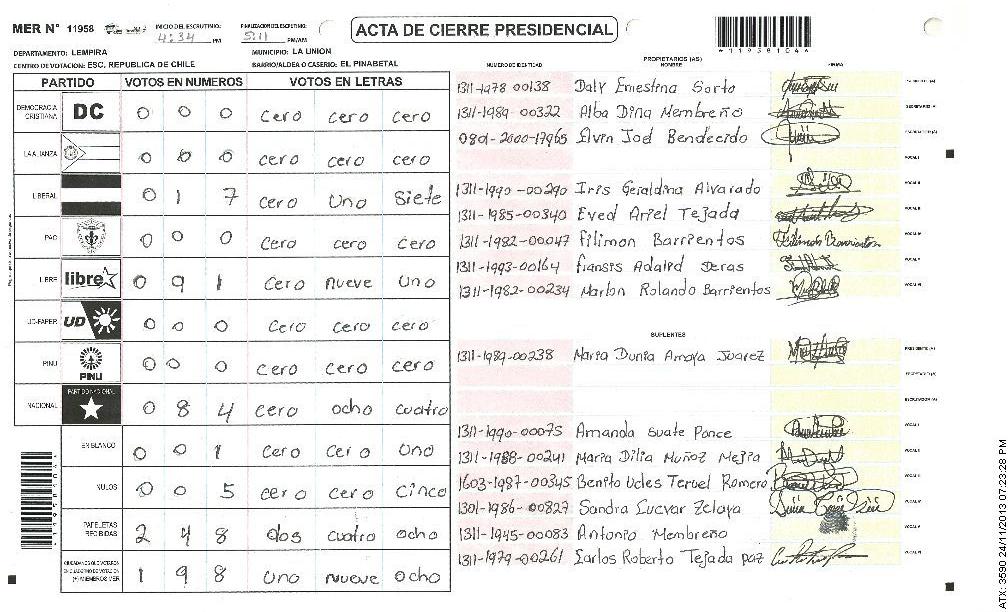 MER N° 11958 INICIO DEL ESCRUTINIO: 4:34 PM FINALIZACION DEL ESCRUTINIO: 5:11 PM/AM ACTA DE CIERRE PRESIDENCIAL
DEPARTAMENTO: LEMPIRA MUNICIPIO: LA UNION
CENTRO DE VOTACION: ESC. REPUBLICA DE CHILE BARRIO/ALDEA O CASERIO: EL PINABETAL
PARTIDO VOTOS EN NUMEROS VOTOS EN LETRAS
DEMOCRACIA CRISTIANA DC 0 0 0 cero cero cero
LA ALIANZA 0 0 0 cero cero cero
LIBERAL 0 1 7 cero uno siete
PAC 0 0 0 cero cero cero
LIBRE libre 0 9 1 cero nueve uno
UD-FAPER UD 0 0 0 cero cero cero
PINU PINU 0 0 0 cero cero cero
NACIONAL PARTIDO NACIONAL 0 8 4 cero ocho cuatro
EN BLANCO 0 0 1 cero cero uno
NULOS 0 0 5 cero cero cinco
PAPELETAS RECIBIDAS 2 4 8 dos cuatro ocho
(+) MIEMBROS MER 1 9 8 uno nueve ocho
PROPIETARIOS (AS)
NUMERO DE IDENTIDAD NOMBRE FIRMA
1311-1978 00138 Daly Ernestina Sorto
1311-1989-00322 Alba Dina Membreño
0801-2000-17965 Elvin Joel Bendecido
1311-1990-00290 Iris Geraldina Alvarado
1311-1985-00340 Eved Ariel Tejada
1311-1982-00047 Filimon Barrientos Filimon Barrientos
1311-1993-00164 Fransis Adalid Deras
1311-1982-00234 Marlon Rolando Barrientos
SUPLENTES
1311-1989-00238 Maria Dunia Amaya Juarez
1311-1990-00075 Amanda Suate Ponce
1311-1988-00241 Maria Dilia Muñoz Mejia
1603-1987-00345 Benito Ucles Teruel Romero
1301-1986-00827 Sandra Cuevar Zelaya
1311-1945-00083 Antonio Membreño
1311-1979-00261 Carlos Roberto Tejada paz
ATX: 3590 24/11/2013 07:23:28 PM